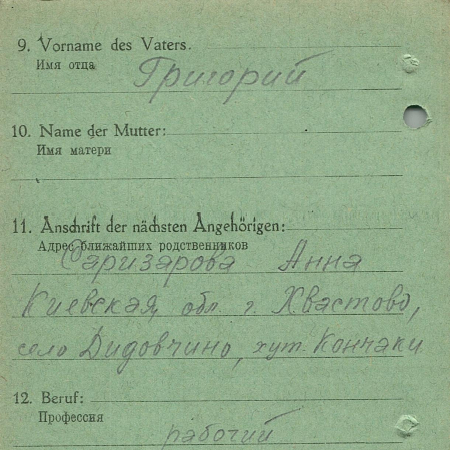 9. Vorname des Vaters.
Имя отца
Григорий
10. Name der Mutter:
Имя матери
11. Anschrift der nächsten Angehörigen:
Адрес ближайших родственников
Саризарова Анна
Киевская обл г. Хвастово,
село Дидовчино, хут. Кончаки
12. Beruf:
Профессия
рабочий